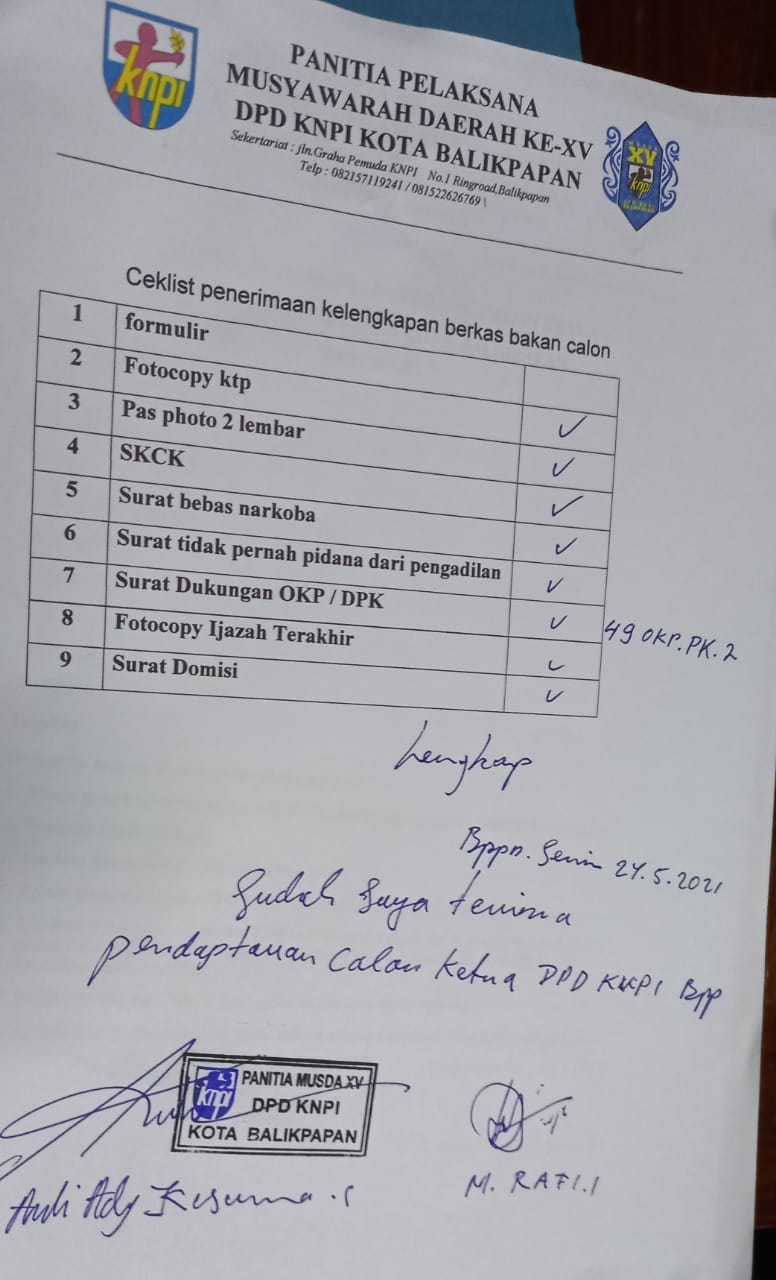 knpi
PANITIA PELAKSANA
MUSYAWARAH DAERAH KE-XV
DPD KNPI KOTA BALIKPAPAN
Sekertariat : jln.Graha Pemuda KNPI No.1 Ringroad,Balikpapan
Telp : 082157119241 / 081522626769 \
XV
knpi
Ceklist penerimaan kelengkapan berkas bakan calon
1 formulir
2 Fotocopy ktp ✓
3 Pas photo 2 lembar ✓
4 SKCK ✓
5 Surat bebas narkoba ✓
6 Surat tidak pernah pidana dari pengadilan ✓
7 Surat Dukungan OKP / DPK ✓ 49 OKP.PK.2
8 Fotocopy Ijazah Terakhir ✓
9 Surat Domisi ✓
Lengkap
Bppn. Senin 24.5.2021
Sudah Saya terima
pendaptaran Calon Ketua DPD KNPI Bpp
knpi
PANITIA MUSDA XV
DPD KNPI
KOTA BALIKPAPAN
Ady Kesuma .S
M. RAFI.I